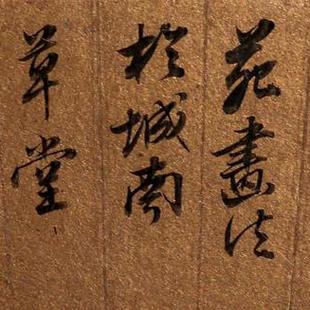 苑畫法
於城南
草堂